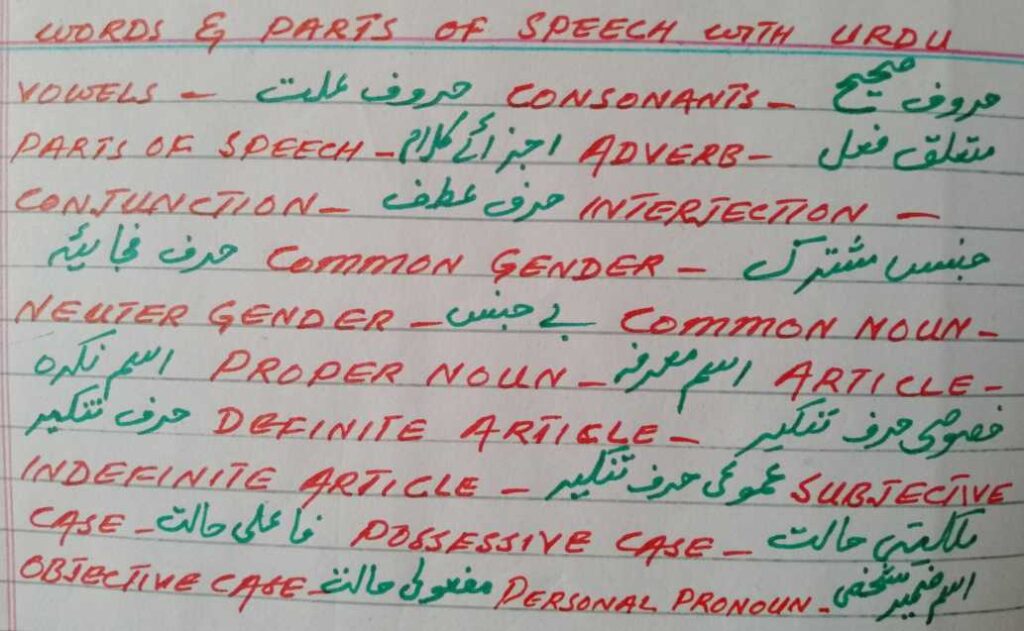 WORDS & PARTS OF SPEECH WITH URDU
VOWELS - حروف علت CONSONANTS - حروف صحیح
PARTS OF SPEECH - اجزائے کلام ADVERB - متعلق فعل
CONJUNCTION - حرف عطف INTERJECTION -
حرف فجائیہ COMMON GENDER - جنس مشترک
NEUTER GENDER - بے جنس COMMON NOUN -
اسم نکرہ PROPER NOUN - اسم معرفہ ARTICLE -
حرف تنکیر DEFINITE ARTICLE - خصوصی حرف تنکیر
INDEFINITE ARTICLE - عمومی حرف تنکیر SUBJECTIVE
CASE - فاعلی حالت POSSESSIVE CASE - ملکیتی حالت
OBJECTIVE CASE - مفعولی حالت PERSONAL PRONOUN - اسم ضمیر شخصی